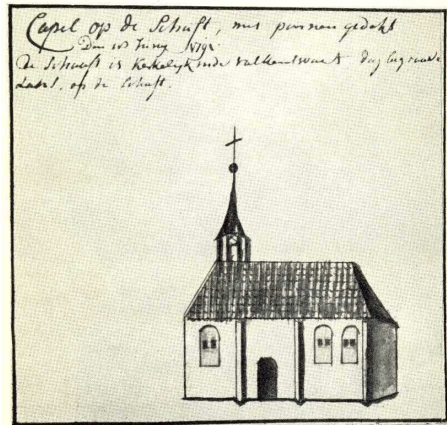 Capel op de Schaft, met pannen gedekt
Den 10 Juny 1792
De Schaaft is Kerkelyk onder Valkenswaert dog
op de Schaft.